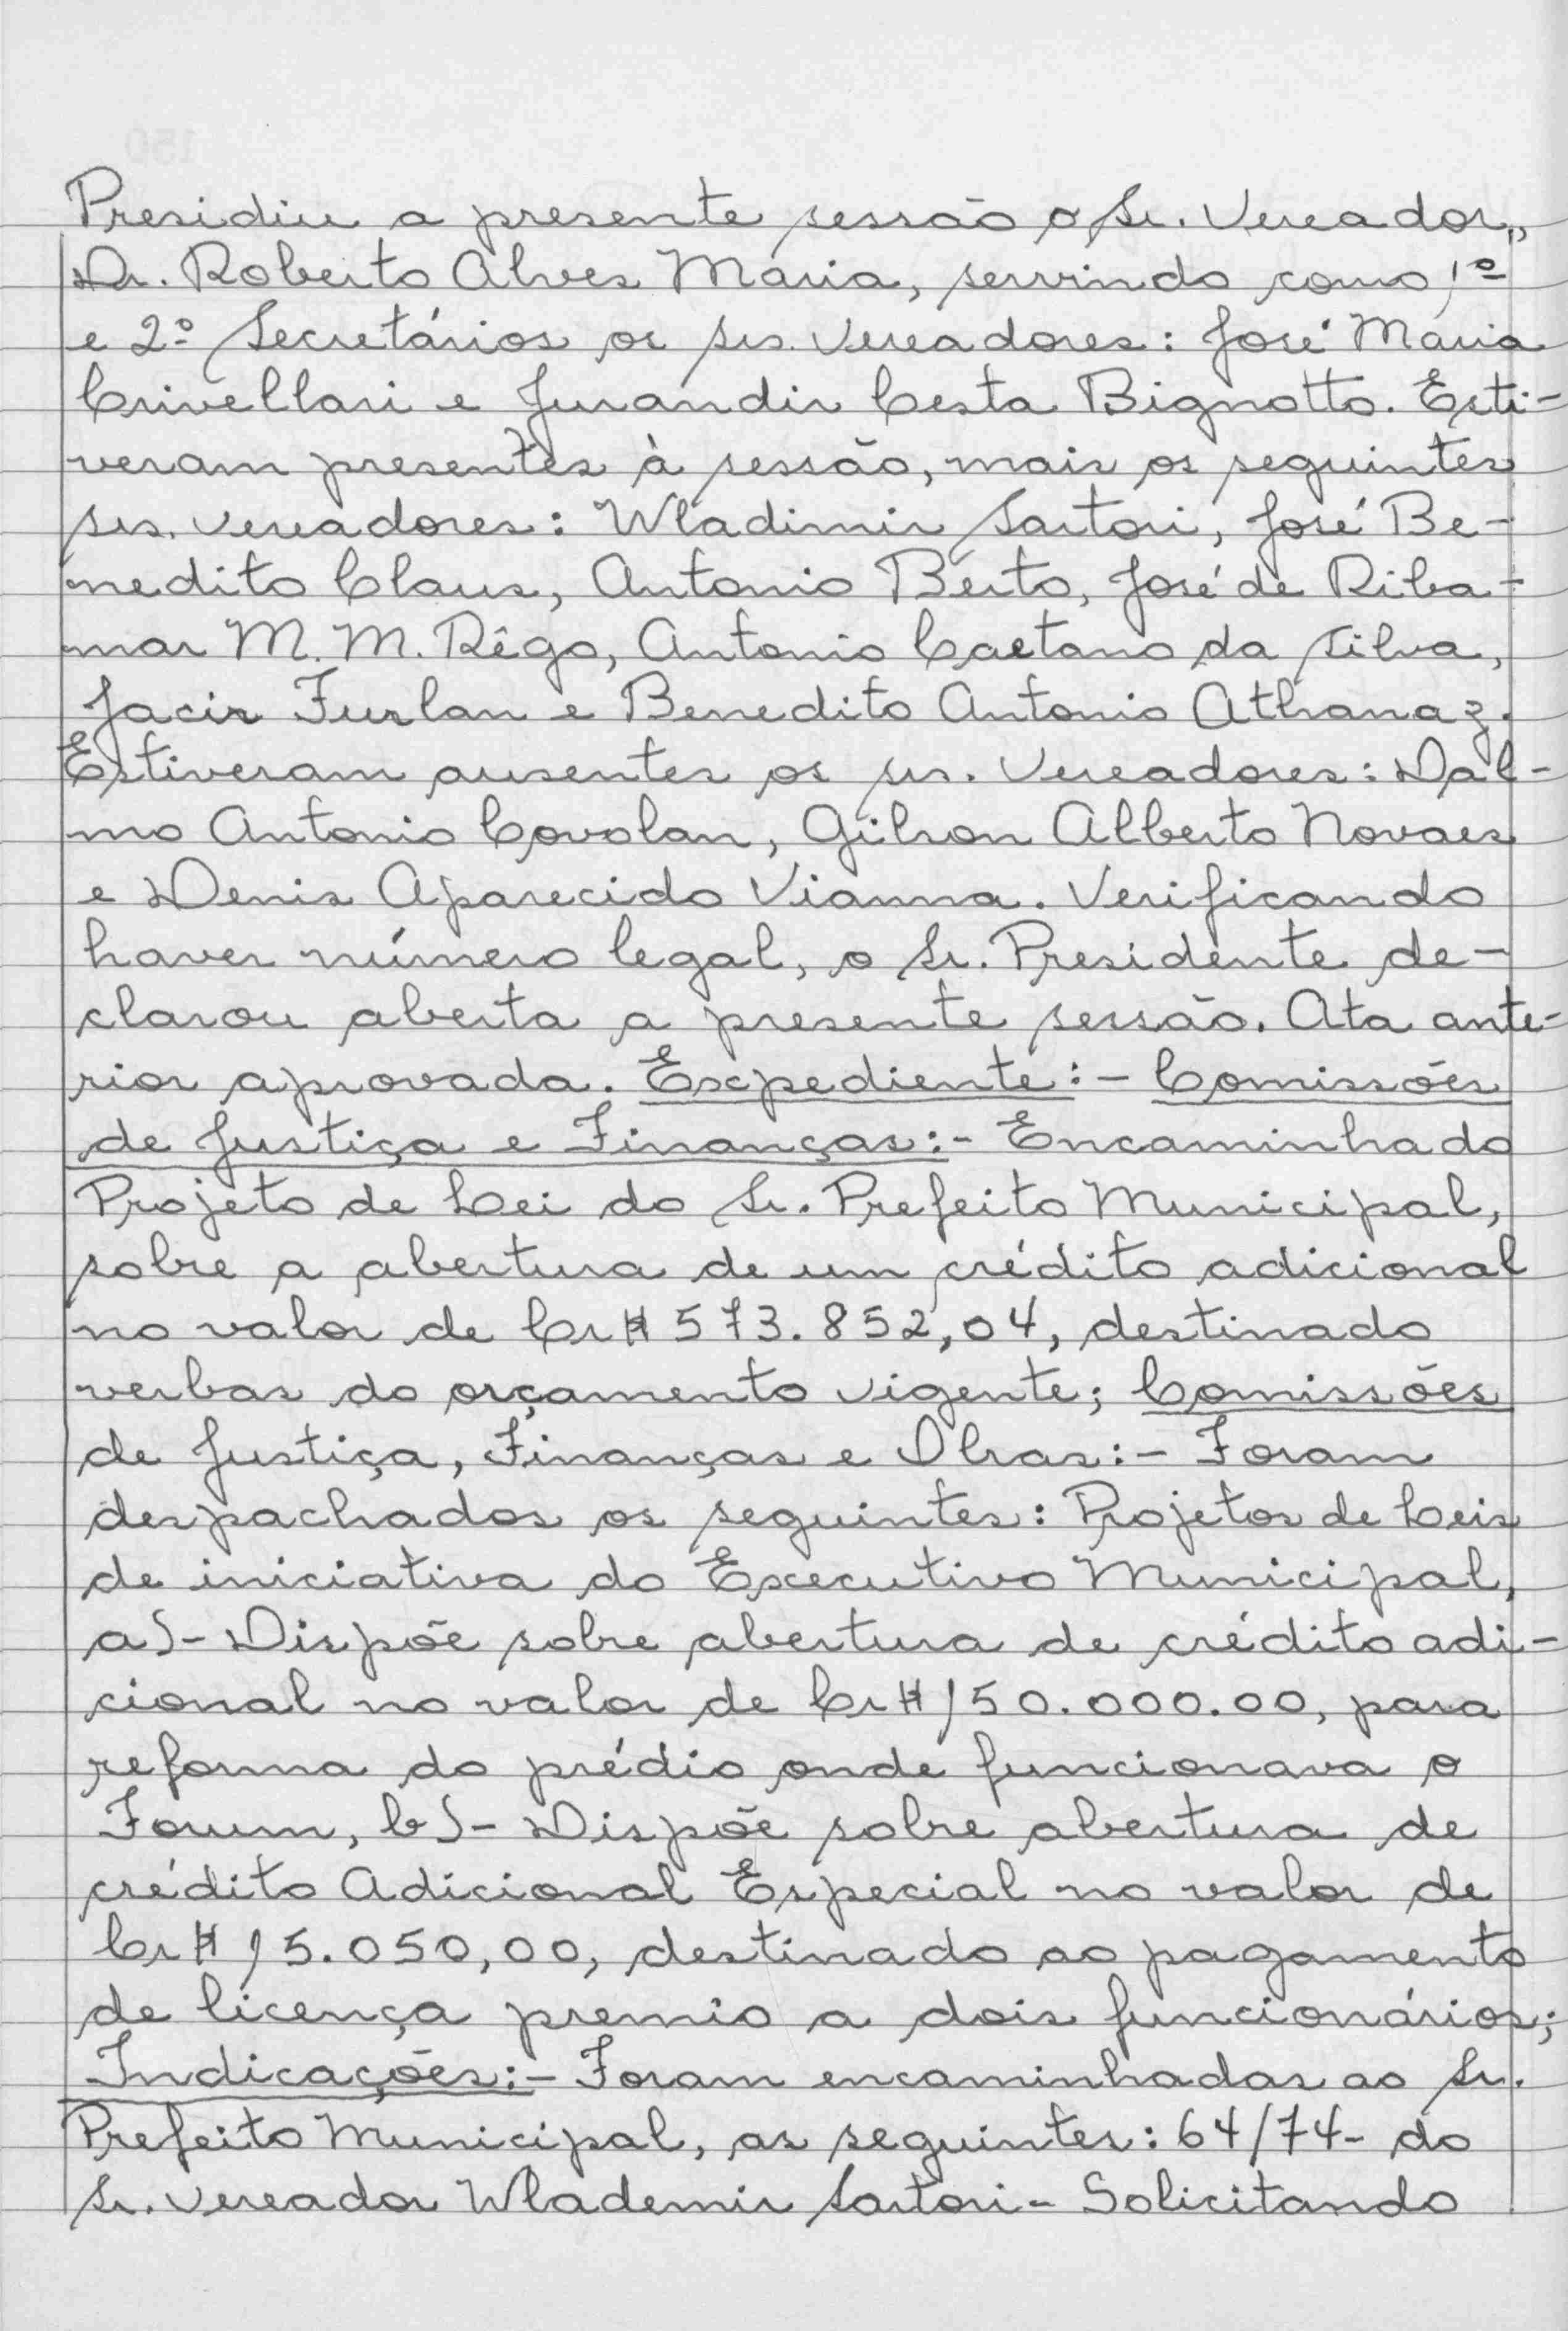 Presidiu a presente sessão o Sr. Vereador,,
Dr. Roberto Alves Maria, servindo como 1º
e 2º Secretários os srs. Vereadores: José Maria
Crivellari e Jurandir Cesta Bignotto. Esti-
veram presentes à sessão, mais os seguintes
srs. vereadores: Wladimir Sartori, José Be-
nedito Claus, Antonio Berto, José de Riba-
mar M. M. Rêgo, Antonio Caetano da Silva,
Jacir Furlan e Benedito Antonio Athanaz.
Estiveram ausentes os srs. Vereadores: Dal-
mo Antonio Covolan, Gilson Alberto Novaes
e Denis Aparecido Vianna. Verificando
haver número legal, o Sr. Presidente de-
clarou aberta a presente sessão. Ata ante-
rior aprovada. Expediente:- Comissões
de Justiça e Finanças:- Encaminhado
Projeto de Lei do Sr. Prefeito Municipal,
sobre a abertura de um crédito adicional
no valor de Cr$ 573.852,04, destinado
verbas do orçamento vigente; Comissões
de Justiça, Finanças e Obras:- Foram
despachados os seguintes: Projetos de Leis
de iniciativa do Executivo Municipal,
a)- Dispõe sobre abertura de crédito adi-
cional no valor de Cr$ 150.000.00, para
reforma do prédio onde funcionava o
Forum, b)- Dispõe sobre abertura de
crédito Adicional Especial no valor de
Cr$ 15.050,00, destinado ao pagamento
de licença premio a dois funcionários;
Indicações:- Foram encaminhadas ao Sr.
Prefeito Municipal, as seguintes: 64/74- do
Sr. vereador Wlademir Sartori- Solicitando